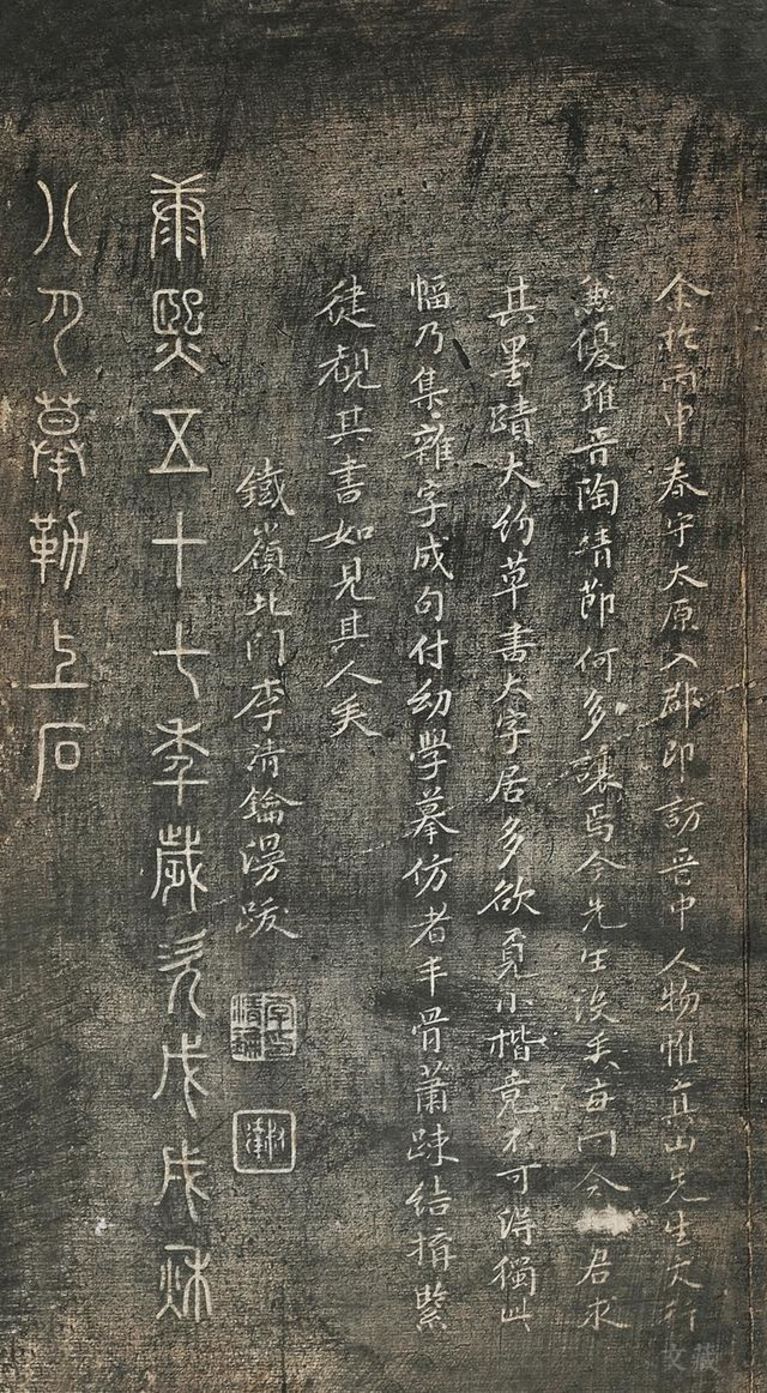 余於丙申春守太原入郡即訪晉中人物惟真山先生文行
兼優雖晉陶靖節何多讓焉今先生沒矣每向令君求
其墨蹟大約草書大字居多欲覓小楷竟不可得獨此
幅乃集雜字成句付幼學摹仿者丰骨蕭疎結搆緊
徤覩其書如見其人矣
鐵嶺北門李清鑰漫跋
李清鑰印
康熙五十七秊歲次戊戌秌
八月摹勒上石
文藏